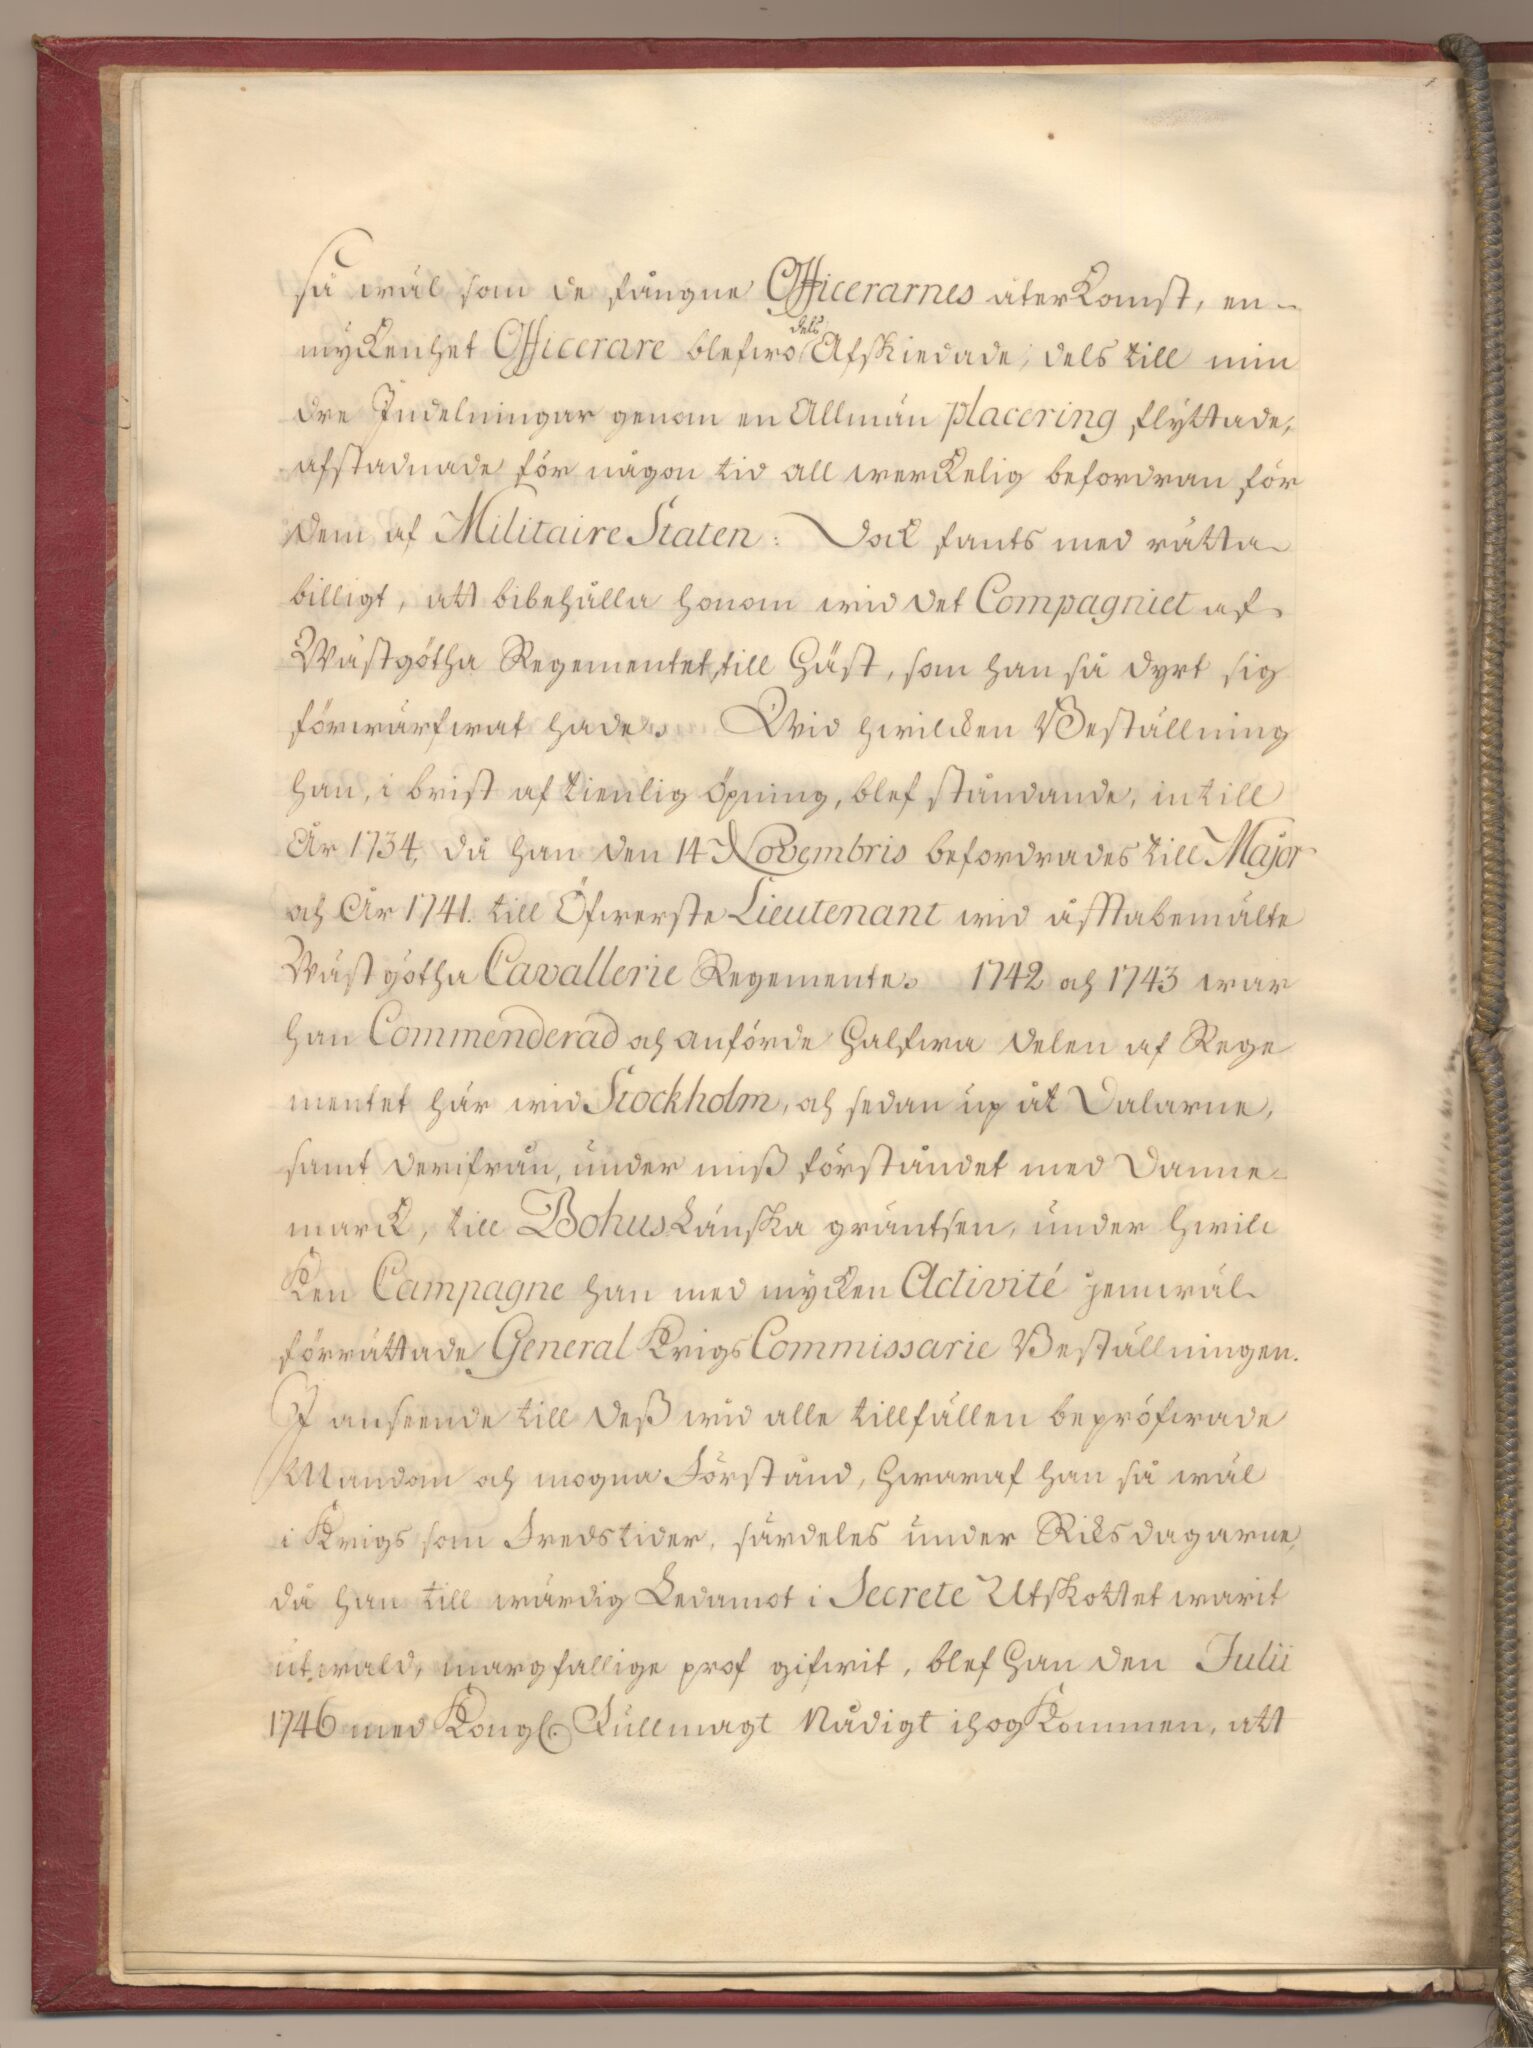 så wäl som de fångne Officerarnes återkomst, en
myckenhet Officerare blefwo dels Afskiedade, dels till min
dre Indelningar genom en Allmän placering flyttade,
afstadnade för någon tid all werckelig befordran för
dem af Militaire Staten: Dock fants med rätta
billigt, att bibehålla honom wid det Compagniet af
Wästgötha Regementet till Häst, som han så dyrt sig
förwärfwat hade. Wid hwilcken Beställning
han, i brist af tienlig öpning, blef ståndande, in till
År 1734, då han den 14 Novembris befordrades till Major
och År 1741. till Öfwerste Lieutenant wid åfftabemälte
Wästgötha Cavallerie Regemente. 1742 och 1743 war
han Commenderad och anförde Halfwa delen af Rege
mentet här wid Stockholm, och sedan up åt Dalarne,
samt derifrån, under miß förståndet med Danne-
marck, till Bohus Länska gräntsen, under hwilc
ken Campagne han med mycken Activité jemwäl
förrättade General Krigs Commissarie Beställningen.
I anseende till deß wid alle tillfällen bepröfwade
Mandom och mogna Förstånd, hwaraf han så wäl
i Krigs som Fredstider, särdeles under Riksdagarne,
då han till wärdig Ledamot i Secrete Utskottet warit
utwald, margfallige prof gifwit, blef Han den Julii
1746 med Kongl. Fullmagt Nådigt ihogkommen, att